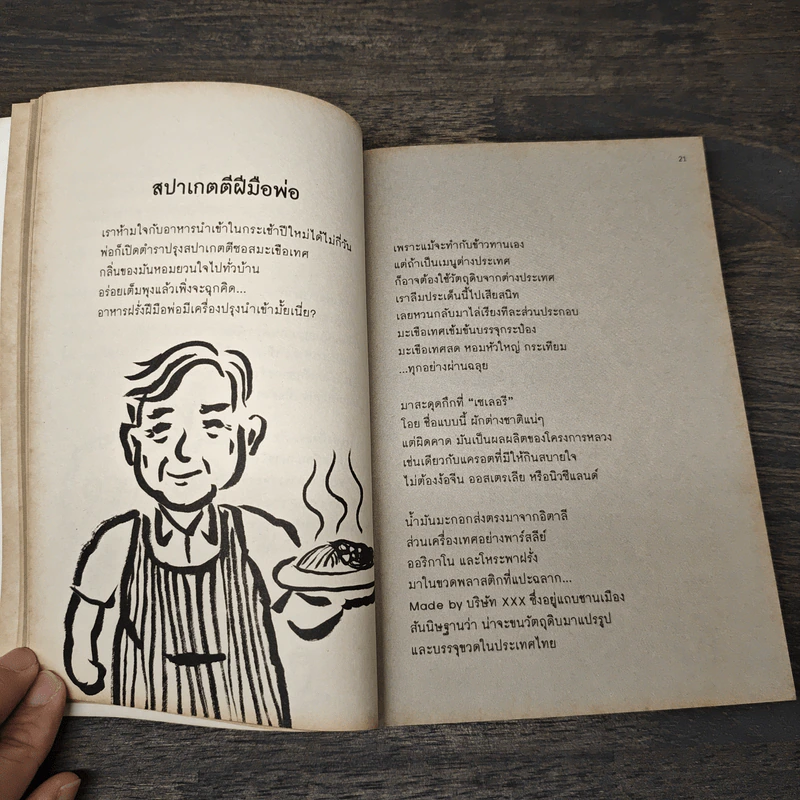 สปาเกตตีฝีมือพ่อ
เราห้ามใจกับอาหารนำเข้าในกระเช้าปีใหม่ได้ไม่กี่วัน
พ่อก็เปิดตำราปรุงสปาเกตตีซอสมะเขือเทศ
กลิ่นของมันหอมยวนใจไปทั่วบ้าน
อร่อยเต็มพุงแล้วเพิ่งจะฉุกคิด...
อาหารฝรั่งฝีมือพ่อมีเครื่องปรุงนำเข้ามั้ยเนี่ย?
21
เพราะแม้จะทำกับข้าวทานเอง
แต่ถ้าเป็นเมนูต่างประเทศ
ก็อาจต้องใช้วัตถุดิบจากต่างประเทศ
เราลืมประเด็นนี้ไปเสียสนิท
เลยหวนกลับมาไล่เรียงทีละส่วนประกอบ
มะเขือเทศเข้มข้นบรรจุกระป๋อง
มะเขือเทศสด หอมหัวใหญ่ กระเทียม
...ทุกอย่างผ่านฉลุย
มาสะดุดกึกที่ “เซเลอรี”
โอย ชื่อแบบนี้ ผักต่างชาติแน่ๆ
แต่ผิดคาด มันเป็นผลผลิตของโครงการหลวง
เช่นเดียวกับแครอตที่มีให้กินสบายใจ
ไม่ต้องง้อจีน ออสเตรเลีย หรือนิวซีแลนด์
น้ำมันมะกอกส่งตรงมาจากอิตาลี
ส่วนเครื่องเทศอย่างพาร์สลีย์
ออริกาโน และโหระพาฝรั่ง
มาในขวดพลาสติกที่แปะฉลาก...
Made by บริษัท XXX ซึ่งอยู่แถบชานเมือง
สันนิษฐานว่า น่าจะขนวัตถุดิบมาแปรรูป
และบรรจุขวดในประเทศไทย